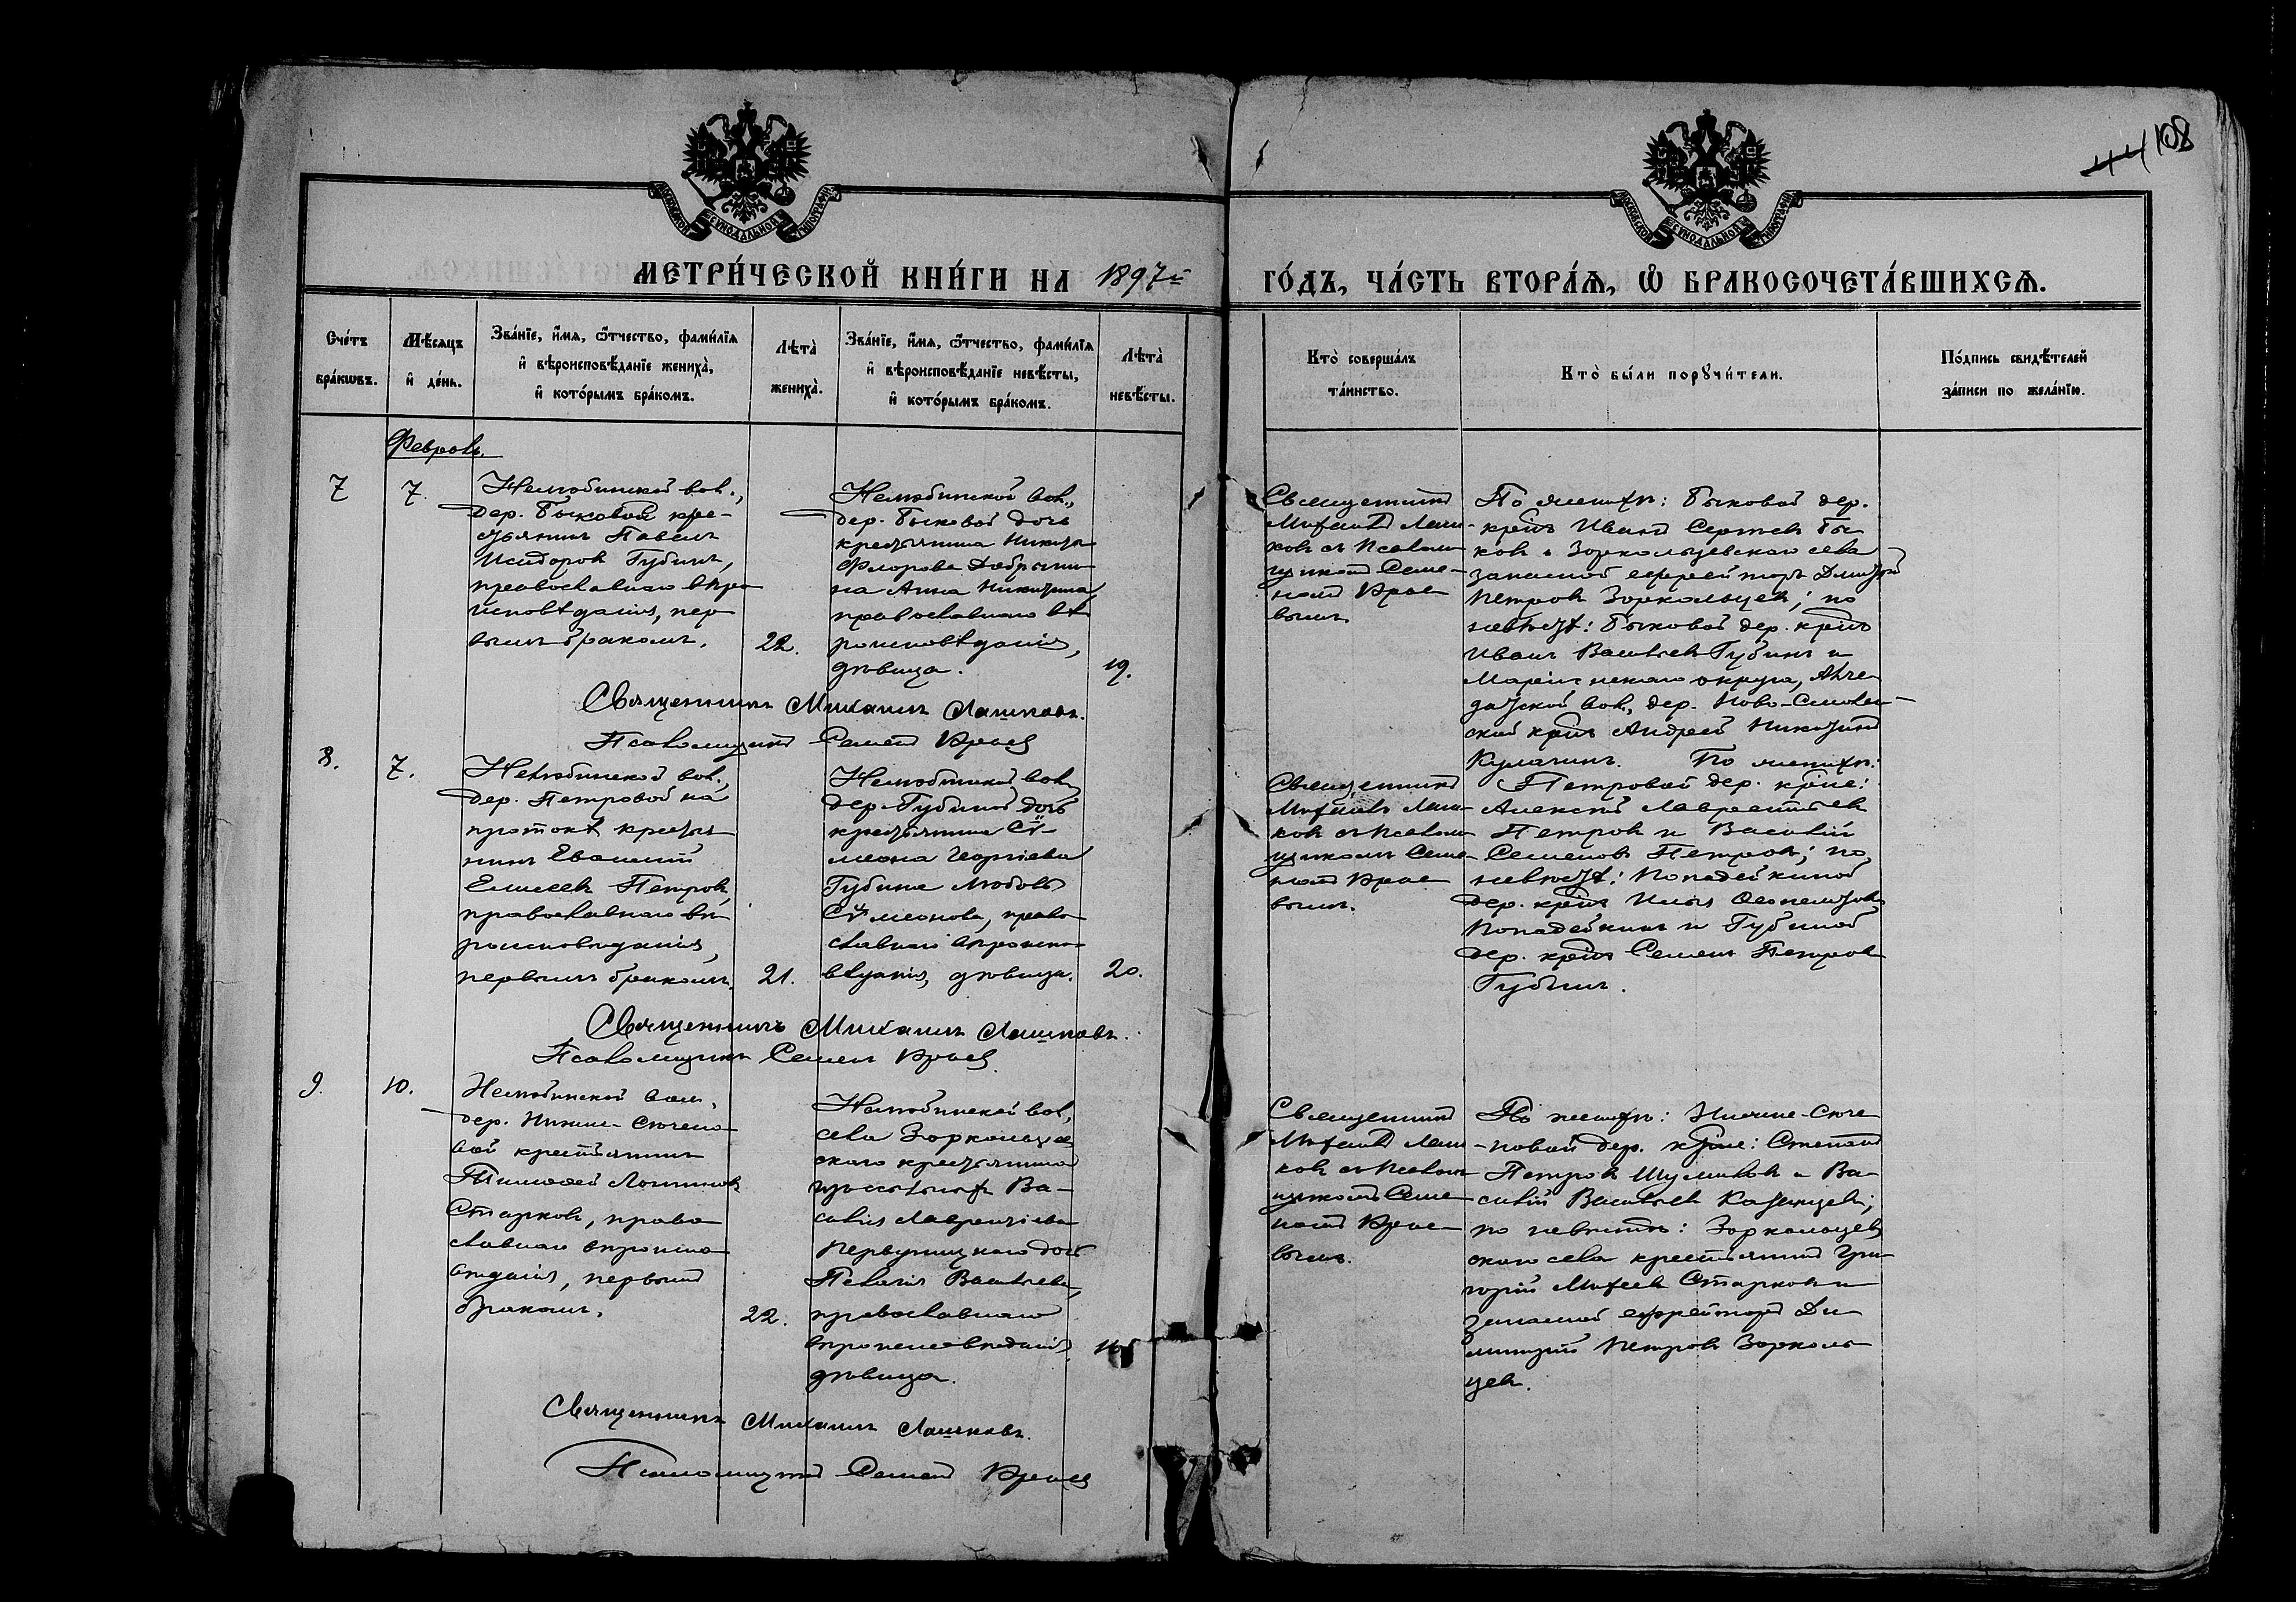 108
44
МОСКОВСКОЙ СѴНОДАЛЬНОЙ ТИПОГРАФІИ
МОСКОВСКОЙ СѴНОДАЛЬНОЙ ТИПОГРАФІИ
МЕТРИ́ЧЕСКОЙ КНИ́ГИ НА 1897й
ГО́ДЪ, ЧА́СТЬ ВТОРА́Ѧ, Ѡ҆ БРАКОСОЧЕТА́ВШИХСѦ.
Сче́тъ
бра́кѡвъ.
Мѣ́сѧцъ
и҆ де́нь.
Зва́нїе, и҆́мѧ, ѻ҆́тчество, фами́лїѧ
и҆ вѣроисповѣ́данїе жениха̀,
и҆ кото́рымъ бра́комъ.
Лѣта̀
жениха̀.
Зва́нїе, и҆́мѧ, ѻ҆́тчество, фами́лїѧ
и҆ вѣроисповѣ́данїе невѣ́сты,
и҆ кото́рымъ бра́комъ.
Лѣта̀
невѣ́сты.
Кто̀ соверша́лъ
та́инство.
Кто̀ бы́ли порꙋчи́тели.
По́дпись свидѣ́телей
за́писи по жела́нїю.
Февраль.
7
7.
Нелюбинской вол.,
дер. Быковой кре-
стьянинъ Павелъ
Исидоровъ Губинъ,
православнаго вѣро
исповѣданія, пер
вымъ бракомъ.
22.
Нелюбинской вол.,
дер. Быковой дочь
крестьянина Никиты
Флорова Добрыни
на Анна Никитина,
православнаго вѣ
роисповѣданія,
дѣвица.
19.
Священникъ
Михаилъ Лаш-
ковъ съ Псалом
щикомъ Семе-
номъ Крае
вымъ.
По женихѣ: Быковой дер.
кр-нъ Иванъ Сергѣевъ Бы
ковъ и Зоркальцевскаго села
запасной ефрейторъ Дмитрій
Петровъ Зоркальцевъ; по
невѣстѣ: Быковой дер. кр-нъ
Иванъ Васильевъ Губинъ и
Маріинскаго округа, Алче
датской вол., дер. Ново-
ской кр-нъ Андрей Никитинъ
Священникъ Михаилъ Лашковъ.
Псаломщикъ Семенъ Краевъ
8.
7.
Нелюбинской вол.
дер. Петровой на
протокѣ крестья
нинъ
Елисеевъ Петровъ,
православнаго вѣ
роисповѣданія,
первымъ бракомъ.
21.
Нелюбинской вол.
дер. Губиной дочь
крестьянина Сѵ-
меона Георгіева
Губина Любовь
Сѵмеонова, право
славнаго вѣроиспо
вѣданія, дѣвица.
20.
Священникъ
Михаилъ Лаш-
ковъ съ Псалом
щикомъ Семе-
номъ Крае
вымъ.
По женихѣ:
Петровой дер. кр-не:
Алексѣй Лаврентьевъ
Петровъ и Василій
Семеновъ Петровъ; по
невѣстѣ: Попадейкиной
дер. кр-нъ Илья
Попадейкинъ и Губиной
дер. кр-нъ Семенъ Петровъ
Губинъ.
Священникъ Михаилъ Лашковъ.
Псаломщикъ Семенъ Краевъ
9.
10.
Нелюбинской вол.,
дер. Нижне-Сечено-
вой крестьянинъ
Тимоѳей Логиновъ
Старковъ, право
славнаго вѣроиспо
вѣданія, первымъ
бракомъ.
22.
Нелюбинской вол.,
села Зоркальцев
скаго крестьянина
изъ ссыльныхъ Ва-
силія Лаврентіева
дочь
Пелагія Васильева,
православнаго
вѣроисповѣданія,
дѣвица.
Священникъ
Михаилъ Лаш
ковъ съ Псалом
щикомъ Семе
номъ Крае
вымъ.
По женихѣ: Нижне-Сече
новой дер. кр-не: Степанъ
Петровъ Шумиловъ и Ва-
силій Васильевъ Казанцевъ;
по невѣстѣ: Зоркальцев
скаго села крестьянинъ Гри-
горій Михеевъ Старковъ и
запасной ефрейторъ Ди
митрій Петровъ Зоркаль
цевъ.
Священникъ Михаилъ Лашковъ.
Псаломщикъ Семенъ Краевъ